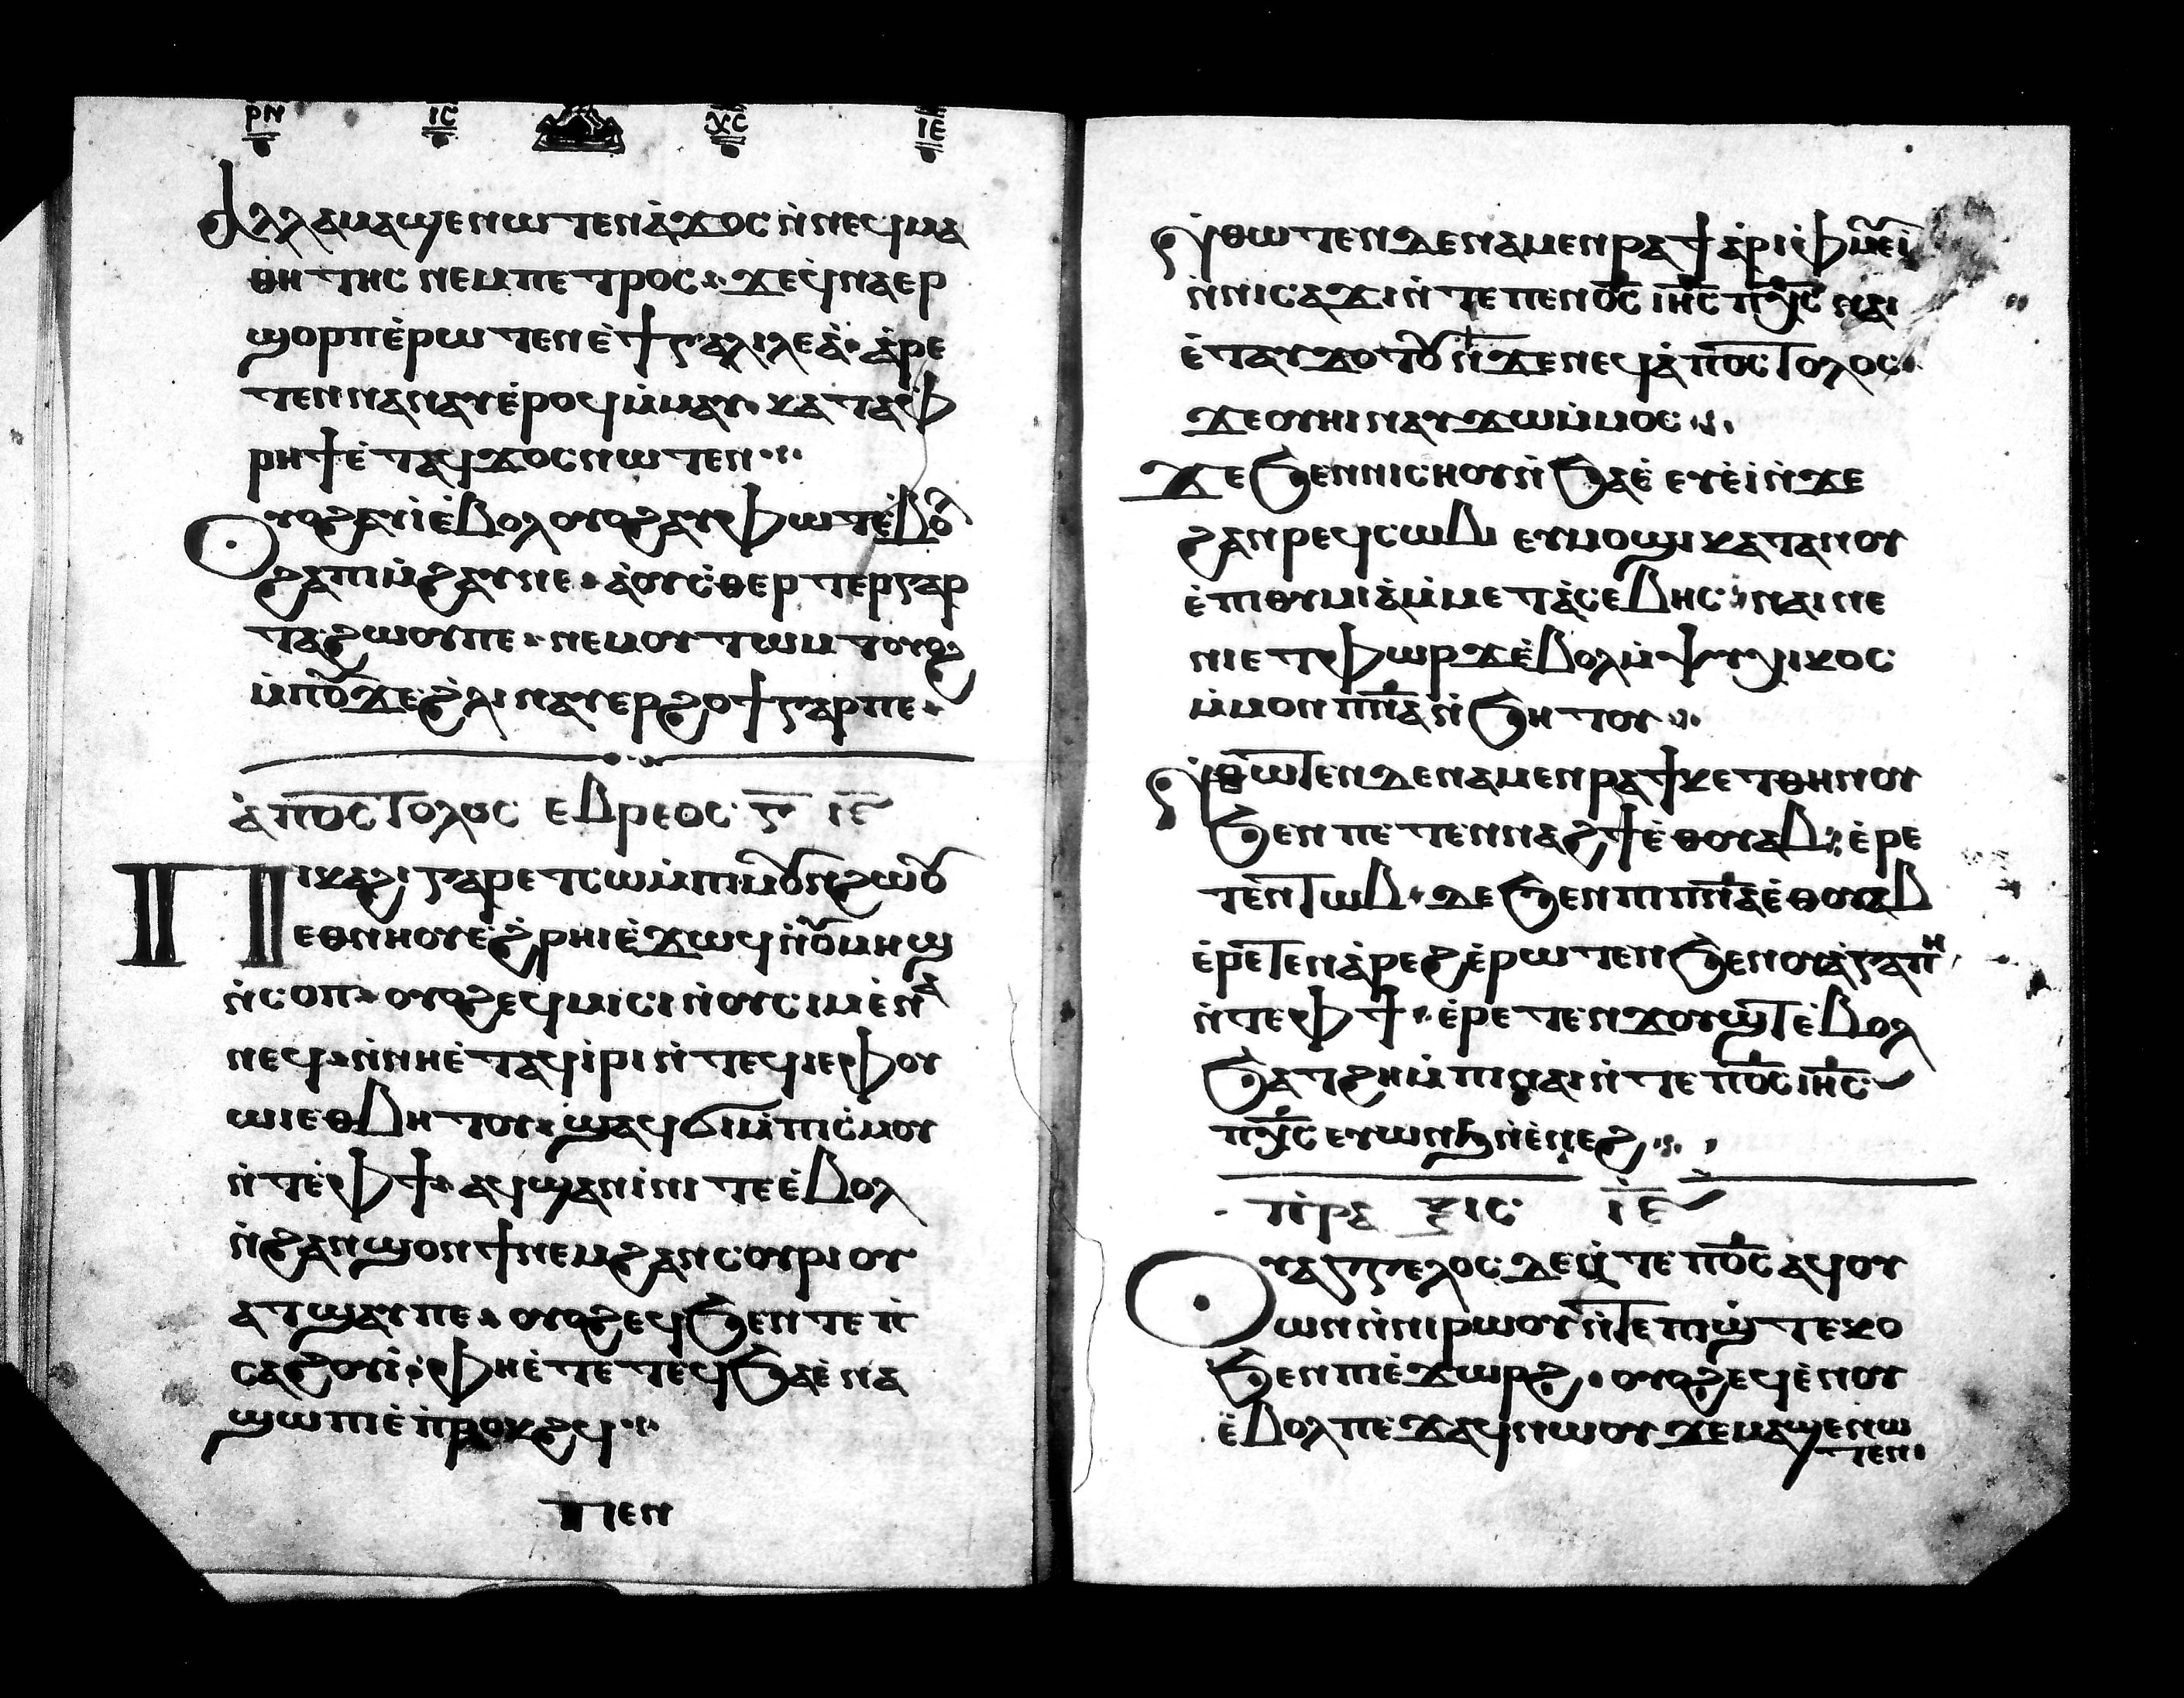 ⲣⲛ ⲓ̅ⲥ̅ ⲭ̅ⲥ̅ ⲓⲉ
Ⲁⲗⲗⲁ ⲙⲁϣⲉⲛⲱⲧⲉⲛ ⲁ̀ϫⲟⲥ ⲛ̀ⲛⲉϥⲙⲁ
ⲑⲏⲧⲏⲥ ⲛⲉⲙ ⲡⲉⲧⲣⲟⲥ · ϫⲉ ϥ̀ⲛⲁⲉⲣ
ϣⲟⲣⲡ ⲉ̀ⲣⲱⲧⲉⲛ ⲉ̀ϯⲅⲁⲗⲓⲗⲉⲁ̀ · ⲁ̀ⲣⲉ
ⲧⲉⲛⲛⲁⲛⲁⲩ ⲉ̀ⲣⲟϥ ⲙ̀ⲙⲁⲩ · ⲕⲁⲧⲁ ⲫ̀
ⲣⲏϯ ⲉ̀ⲧⲁϥϫⲟⲥ ⲛⲱⲧⲉⲛ ⁘
Ⲟⲩⲟϩ ⲁⲩⲓ̀ ⲉ̀ⲃⲟⲗ ⲟⲩⲟϩ ⲁⲩⲫⲱⲧ ⲉ̀ⲃⲟⲗ
ϩⲁ ⲡⲓⲙ̀ϩⲁⲩ ⲛⲉ · ⲁ̀ ⲟⲩⲥ̀ⲑⲉⲣⲧⲉⲣ ⲅⲁⲣ
ⲧⲁϩⲱⲟⲩ ⲡⲉ · ⲛⲉⲙ ⲟⲩⲧⲱⲙⲧ ⲟⲩⲟϩ
ⲙ̀ⲡⲟⲩϫⲉ ϩ̀ⲗⲓ ⲛⲁⲩⲉⲣϩⲟϯ ⲅⲁⲣ ⲡⲉ ·
ⲁ̀ⲡⲟⲥⲧⲟⲗⲟⲥ ⲉⲃⲣⲉⲟⲥ ⲅ̅ ⲓ̅ⲉ̅
Ⲡⲓⲕⲁϩⲓ ⲅⲁⲣ ⲉⲧⲥⲱ ⲙ̀ⲡⲓⲙⲟⲩⲛϩⲱⲟⲩ
ⲉⲑⲛⲏⲟⲩ ⲉ̀ϩ̀ⲣⲏⲓ ⲉ̀ϫⲱϥ ⲛ̀ⲟⲩⲙⲏϣ
ⲛ̀ⲥⲟⲡ · ⲟⲩⲟϩ ⲉϥⲙⲓⲥⲓ ⲛ̀ⲟⲩⲥⲓⲙ ⲉ̀ⲛⲁ
ⲛⲉϥ · ⲛ̀ⲛⲏ ⲉ̀ⲧⲁϥⲓ̀ⲣⲓ ⲛ̀ⲧⲉϥⲓⲉⲫⲟⲩ
ⲱⲓ ⲉⲑⲃⲏⲧⲟⲩ · ϣⲁϥϭⲓ ⲙ̀ⲡⲓⲥ̀ⲙⲟⲩ
ⲛ̀ⲧⲉ̀ ⲫϯ · ⲁϥϣⲁⲛⲓ̀ⲛⲓ ⲧⲉ ⲉ̀ⲃⲟⲗ
ⲛ̀ϩⲁⲛϣⲟⲛϯ ⲛⲉⲙ ϩⲁⲛⲥⲟⲩⲣⲓ ⲟⲩ
ⲁⲧϣⲁⲩ ⲡⲉ · ⲟⲩⲟϩ ⲉϥϧⲉⲛⲧ ⲉⲡ̀
ⲥⲁϩⲟⲩⲓ̀ · ⲫⲏ ⲉ̀ⲧⲉ ⲧⲉϥϧⲁⲉ̀ ⲛⲁ
ϣⲱⲡⲓ ⲉ̀ⲡ̀ⲣⲟⲕϩϥ ⁘
ⲡⲉⲛ
Ⲛ̀ⲑⲱⲧⲉⲛ ⲇⲉ ⲛⲁⲙⲉⲛⲣⲁϯ ⲁ̀ⲣⲓⲫ̀ⲙⲉⲩⲓ̀
ⲛ̀ⲛⲓⲥⲁϫⲓ ⲛ̀ⲧⲉ ⲡⲉⲛⲟ̅ⲥ̅ ⲓⲏ̅ⲥ̅ ⲡⲭ̅ⲥ̅ ⲛⲁⲓ
ⲉ̀ⲧⲁⲩϫⲟⲧⲟⲩ ⲛ̀ϫⲉ ⲛⲉϥⲁ̀ⲡⲟⲥⲧⲟⲗⲟⲥ ·
ϫⲉ ⲟⲩⲏⲓ ⲛⲁⲩϫⲱ ⲙ̀ⲙⲟⲥ ⁘
Ϫⲉ ϧⲉⲛ ⲛⲓⲥⲏⲟⲩ ⲛ̀ϧⲁⲉ̀ ⲉⲩⲉ̀ⲓ̀ ⲛ̀ϫⲉ
ϩⲁⲛⲣⲉϥⲥⲱⲃⲓ ⲉⲩⲙⲟϣⲓ ⲕⲁⲧⲁ ⲛⲟⲩ
ⲉ̀ⲡⲓⲑⲩⲙⲓⲁ̀ ⲙ̀ⲙⲉⲧⲁ̀ⲥⲉⲃⲏⲥ · ⲛⲁⲓ ⲛⲉ
ⲛⲓⲉⲧⲫⲱⲣϫ ⲉ̀ⲃⲟⲗ ⲙ̀ⲯⲩⲭⲓⲕⲟⲥ
ⲙ̀ⲙⲟⲛ ⲡⲛ̅ⲁ̅ ⲛ̀ϧⲏⲧⲟⲩ ⁘
Ⲛ̀ⲑⲱⲧⲉⲛ ⲇⲉ ⲛⲁⲙⲉⲛⲣⲁϯ ⲕⲉⲧ ⲑⲏⲛⲟⲩ
ϧⲉⲛ ⲡⲉⲧⲉⲛⲛⲁϩϯ ⲉ̀ⲑⲟⲩⲁⲃ · ⲉ̀ⲣⲉ
ⲧⲉⲛⲧⲱⲃ · ⲇⲉ ϧⲉⲛ ⲡⲓⲡⲛ̅ⲁ̅ ⲉ̀ⲑⲟⲩⲁⲃ
ⲉ̀ⲣⲉⲧⲉⲛⲁ̀ⲣⲉϩ ⲉ̀ⲣⲱⲧⲉⲛ ϧⲉⲛ ⲟⲩⲁ̀ⲅⲁⲡⲏ
ⲛ̀ⲧⲉ ⲫϯ · ⲉ̀ⲣⲉⲧⲉⲛϫⲟⲩϣⲧ ⲉ̀ⲃⲟⲗ
ϧⲁⲧϩⲏ ⲙ̀ⲡⲓⲛⲁⲓ ⲛ̀ⲧⲉ ⲡⲟ̅ⲥ̅ ⲓⲏ̅ⲥ̅
ⲡⲭ̅ⲥ̅ ⲉⲩⲱⲛϧ ⲛ̀ⲉ̀ⲛⲉϩ ⁘
ⲡ̀ⲣⲁⲝⲓⲥ ⲓ̅ⲉ̅
Ⲟⲩⲁⲅⲅⲉⲗⲟⲥ ⲇⲉ ⲛ̀ⲧⲉ ⲡⲟ̅ⲥ̅ ⲁϥⲟⲩ
ⲱⲛ ⲛ̀ⲛⲓⲣⲱⲟⲩ ⲛ̀ⲧⲉ ⲡⲓϣ̀ⲧⲉⲕⲟ
ϧⲉⲛ ⲡⲓⲉ̀ϫⲱⲣϩ · ⲟⲩⲟϩ ⲉϥⲉ̀ⲛⲟⲩ
ⲉ̀ⲃⲟⲗ ⲡⲉϫⲁϥ ⲛⲱⲟⲩ ϫⲉ ⲙⲁϣⲉⲛⲱ
ⲧⲉⲛ ·